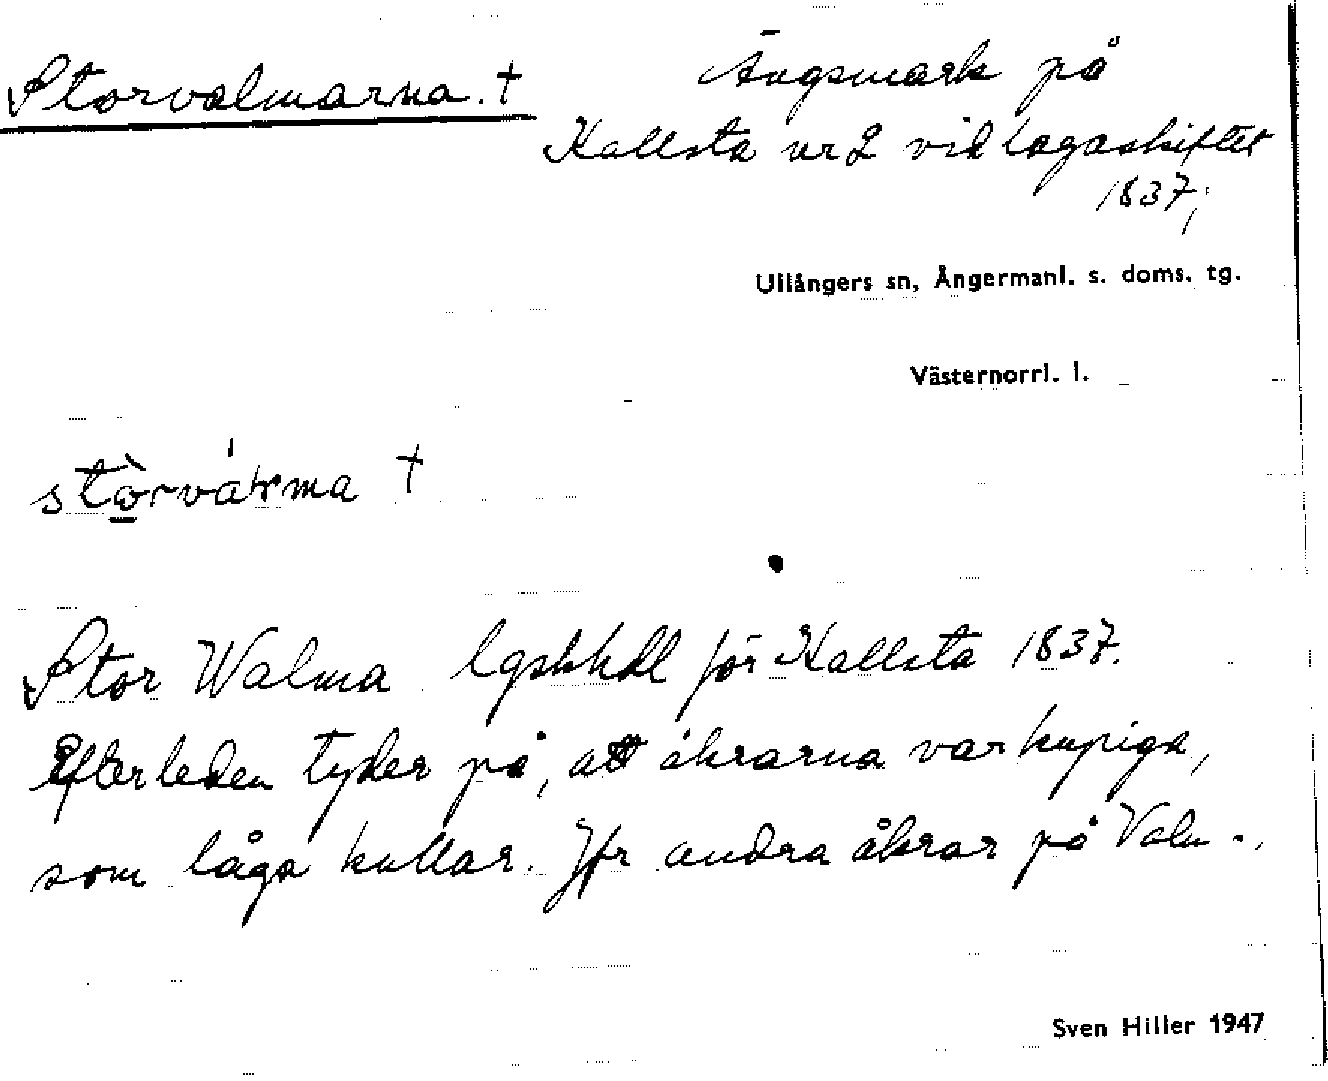 Storvalmarna. †
Ängsmark på
Kallsta nr 2 vid lagaskiftet
1837;
Ullångers sn, Ångermanl. s. doms. tg.
Västernorrl. l.
†
Stor Walma lgskhdl för Kallsta 1837.
Efterleden tyder på, att åkrarna var kupiga,
som låga kullar. Jfr andra åkrar på Valm-.
Sven Hiller 1947